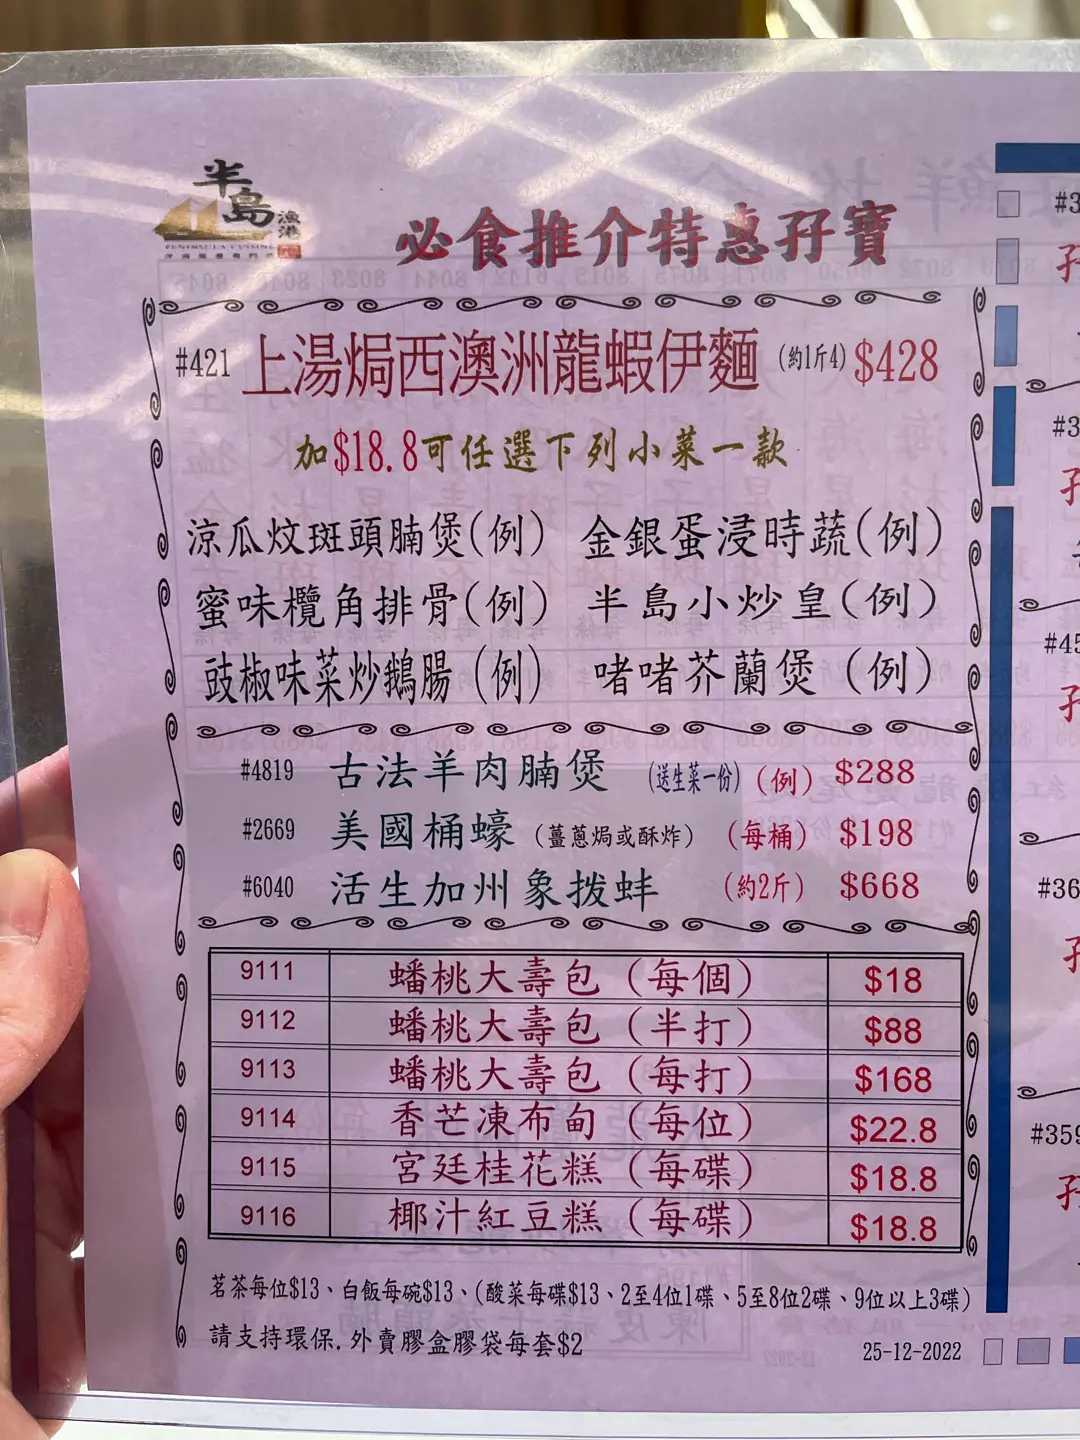 半島
漁港
PENINSULA CUISINE
必食推介特惠孖寶
#421 上湯焗西澳洲龍蝦伊麵 (約1斤4) $428
加$18.8可任選下列小菜一款
涼瓜炆斑頭腩煲(例) 金銀蛋浸時蔬(例)
蜜味欖角排骨(例) 半島小炒皇(例)
豉椒味菜炒鵝腸(例) 啫啫芥蘭煲(例)
#4819 古法羊肉腩煲 (送生菜一份) (例) $288
#2669 美國桶蠔 (薑蔥焗或酥炸) (每桶) $198
#6040 活生加州象拔蚌 (約2斤) $668
9111 蟠桃大壽包(每個) $18
9112 蟠桃大壽包(半打) $88
9113 蟠桃大壽包(每打) $168
9114 香芒凍布甸(每位) $22.8
9115 宮廷桂花糕(每碟) $18.8
9116 椰汁紅豆糕(每碟) $18.8
茗茶每位$13、白飯每碗$13、(酸菜每碟$13、2至4位1碟、5至8位2碟、9位以上3碟)
請支持環保.外賣膠盒膠袋每套$2
25-12-2022
#3
孖
#3
孖
#45
孖
#36
孖
#359
孖